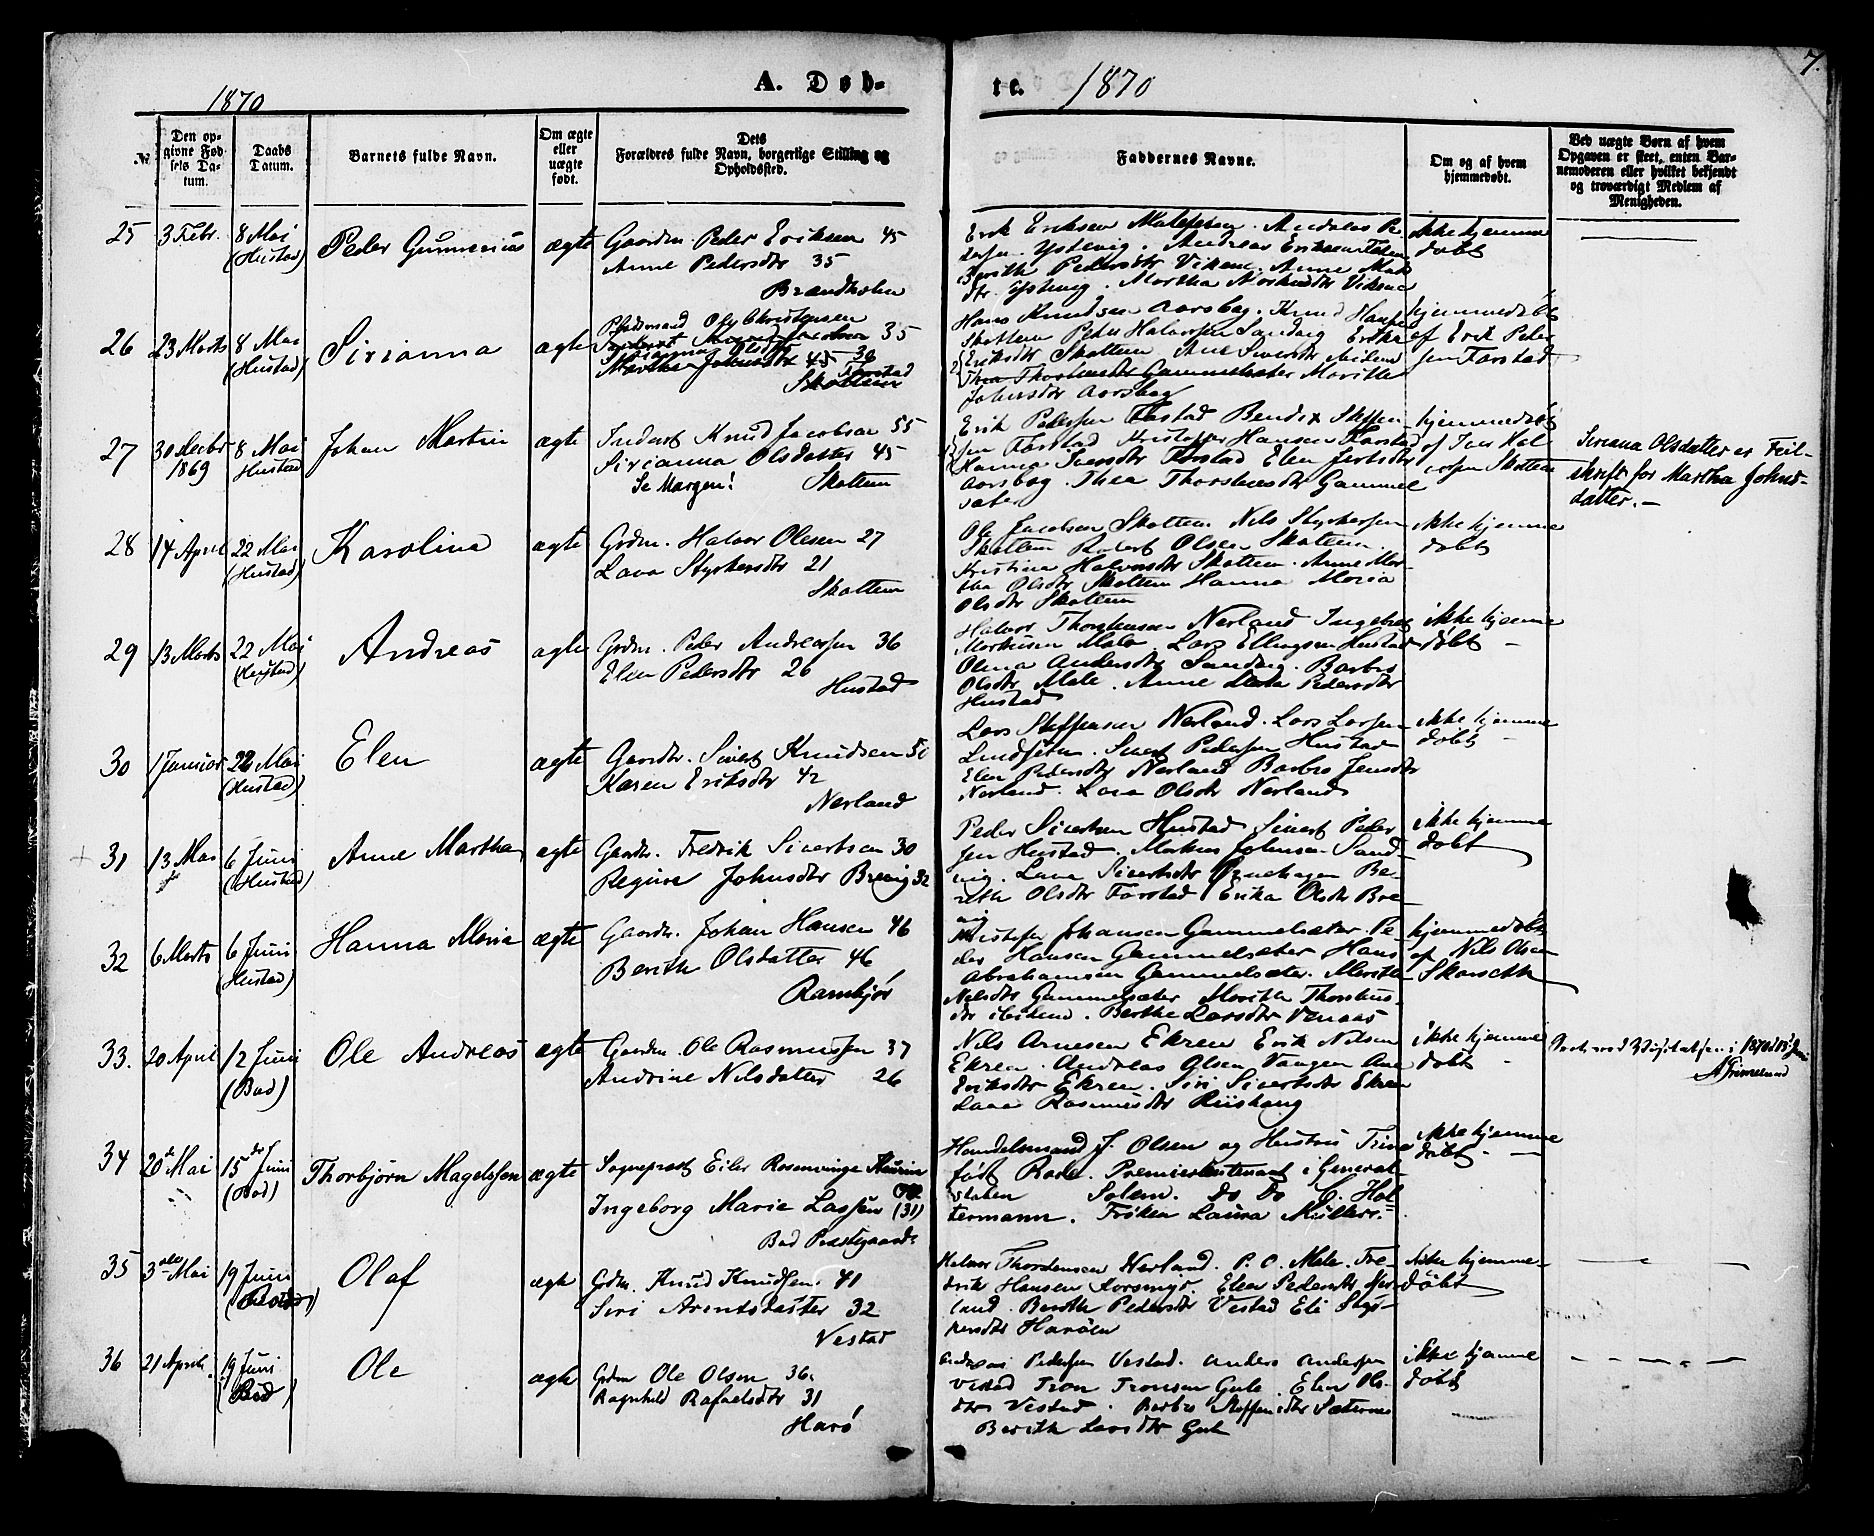 1870
A. Døb-
te.
1870
7.
No.
Den op-
givne Fød-
sels Da-
tum.
Daabs
Datum.
Barnets fulde Navn.
Om ægte
eller
uægte
født.
Dets
Forældres fulde Navn, borgerlige Stilling og
Opholdssted.
Faddernes Navne.
Om og af hvem
hjemmedøbt.
Ved uægte Børn af hvem
Opgaven er skeet, enten Bar-
nemoderen eller hvilket bekjendt
og troværdigt Medlem af
Menigheden.
25
3 Febr.
8 Mai
(Hustad)
Peder Gunnerius
ægte
Gaardm. Peder Eriksen 45
Anne Pedersdtr 35
Brandholm
Erik Eriksen Andreas Pe-
dersen Andreas Eriksen
Berith Pedersdtr Viken. Anne
Martha Viken
ikke hjemme
døbt
26
23 Marts
8 Mai
(Hustad)
Sirianna
ægte
Pladsmand Ole Christensen
35
Martha Johnsdtr 45 36
Farstad
Skottem
Hans Knudsen Aarsbog. Knud
Skottem Peder Halvorsen Sandvig Erika
Eriksdtr Skottem
Thea Gammelsæter Marith
Johnsdtr Aarsbog
hjemmedøbt
af Erik Peder
sen Farstad
27
30 Decbr
1869
8 Mai
Hustad
Johan Martin
ægte
Inderst Knud Jacobsen 55
Sirianna Olsdatter 45
Se Margen! Skottem
Erik Pedersen Farstad Bendix Steffen-
sen Farstad Kristoffer Hansen Farstad
Hanna Farstad Elen
Aarsbog. Thea Gammel
sæter
hjemmedøbt
af Jens Hal
vorsen Skottem
Siriana Olsdatter er Feil-
skrift for Martha Johns-
datter. —
28
14 April
22 Mai
(Hustad)
Karolina
ægte
Grdm. Halvor Olesen 27
Lava Styrkersdtr 21
Skottem
Ole Jacobsen Skottem. Nils Styrkersen
Skottem Robert Olsen Skottem.
Kristina Halvorsdtr Skottem. Anne Mar-
tha Olsdtr Skottem Hanna Maria
Olsdtr Skottem
ikke hjemme
døbt
29
13 Marts
22 Mai
(Hustad)
Andreas
ægte
Grdm. Peder Andreassen 36
Elen Pedersdtr 26
Hustad
Halvor Thorstensen Nerland Ingebret
Male. Lars Ellingsen Hustad
Olina Andersdtr Sandvig. Barbro
Olsdtr Male. Anne Pedersdtr
Hustad
ikke hjemme
døbt —
30
1 Januar
22 Mai
(Hustad)
Elen
ægte
Gaardbr. Sivert Knudsen
Karen Eriksdtr 42
Nerland
Lars Steffensen Nerland. Lars Larsen
Sivert Pedersen Hustad
Elen Pedersdtr Nerland Barbro Jensdtr
Nerland. Lava Olsdtr Nerland
ikke hjemme
døbt —
31
13 Mai
6 Juni
(Hustad)
Anne Martha
ægte
Gaardbr. Fredrik Sivertsen 30
Regine Johnsdtr Brevig 32
Peder Sivertsen Hustad Sivert Peder
sen Hustad. Johnsen Sand-
vig. Lava Sivertsdtr Be-
rith Olsdtr Farstad Erika Olsdtr Bre
vig
ikke hjemme
døbt
32
6 Marts
6 Juni
(Hustad)
Hanna Maria
ægte
Gaardbr. Johan Hansen 46
Berith Olsdatter 46
Rambjør
Kristoffer Johansen Gammelsæter. Pe-
der Hansen Gammelsæter Hans
Abrahamsen Gammelsæter. Marith
Nilsdtr Gammelsæter Marith
Berthe Larsdtr
hjemmedøbt
af Nils Olsen
Skarseth
33.
20 April
12 Juni
(Bud)
Ole Andreas
ægte
Gaardm. Ole Rasmussen 37
Andrine Nilsdatter 26
Nils Arnesen Ekren Erik Nilsen
Ekren. Andreas Olsen Vaagen Ane
Eriksdtr Ekren. Siri Sivertsdtr Ekren
Lava Rasmusdtr Riishaug
ikke hjemme
døbt —
1870
A Grimelund
34
20de Mai
15de Juni
(Bud)
Thorbjørn Magelssen
ægte
Sogneprest Eiler Rosenvinge
Ingeborg Marie Lassen (31)
Bud Præstegaard
Handelsmand J. Olsen og Hustru Trine
født Premierlieutenant i General
staben Solem. Do Do C. Hol
termann. Frøken Laura Müller.
ikke hjemme
døbt —
35
3die Mai
19 Juni
Olaf
ægte
Grdm. Knud Knudsen. 41
Siri Arentsdatter 32
Vestad
Halvor Thorstensen Nerland. P. O. Male. Fre-
drik Hansen Elen Pedersdtr Ner
land. Berith Pedersdtr Vestad Eli Styr-
kersdtr Harøen
ikke hjemme-
døbt
36
21 April.
19 Juni
(Bud)
Ole
ægte
Grdm Ole Olsen 36.
Ragnhild Rafaelsdtr 31
Harø
Pedersen Vestad. Anders Andersen
Vestad Tron Tronsen Gule. Elen Ols-
dtr Vestad. Barbro Steffensdtr
Berith Larsdtr Gule
ikke hjemme
døbt